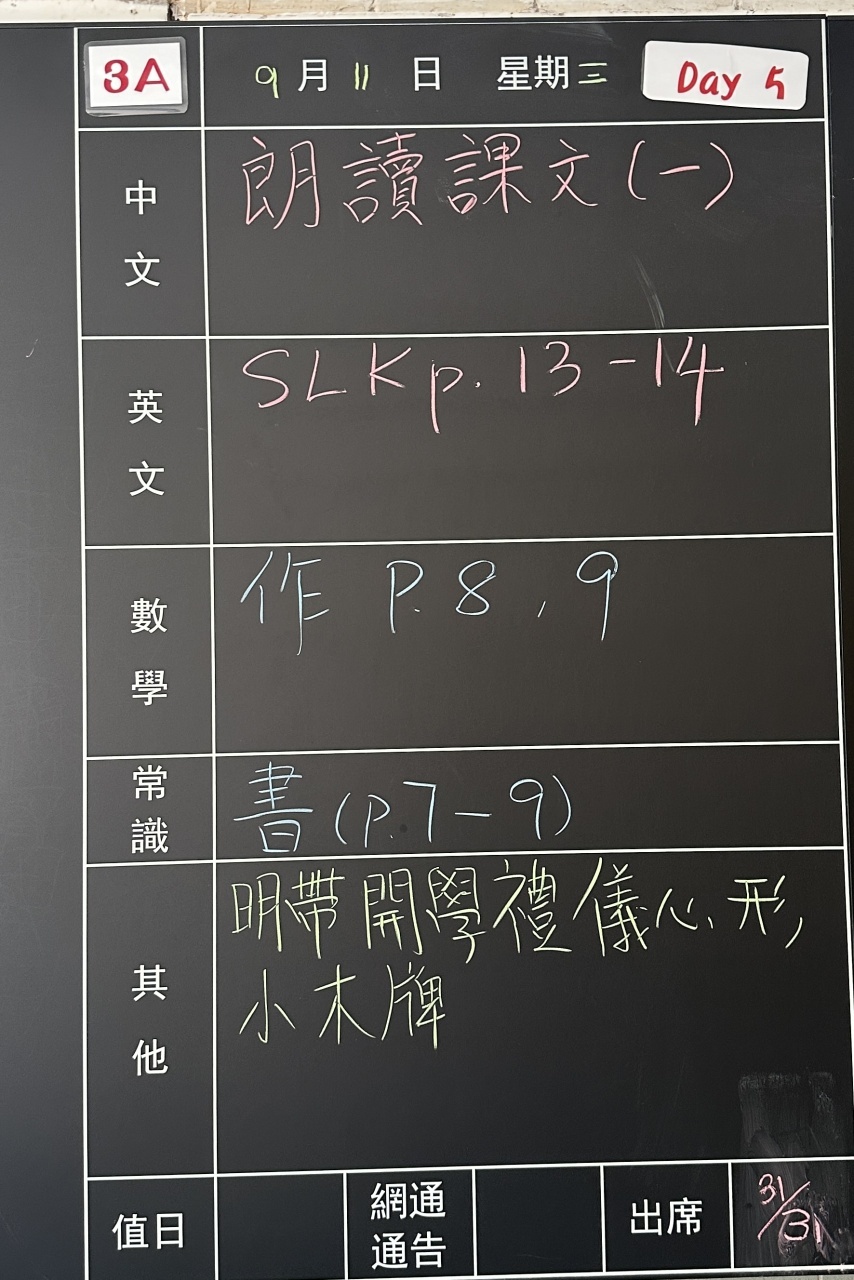 3A 9月11日 星期三 Day 5
中文 朗讀課文(一)
英文 SLK p. 13-14
數學 作 P. 8, 9
常識 書(P.7-9)
其他 明帶開學禮儀心形,
小木牌
值日 網通通告 出席 31/31